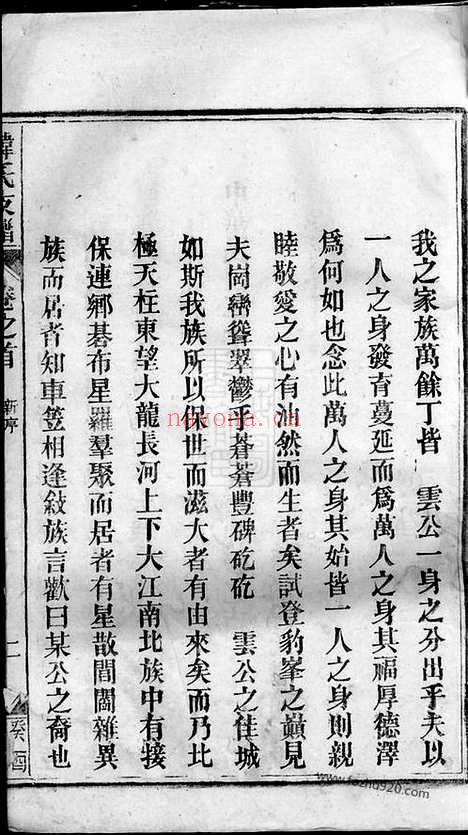 我之家族萬餘丁皆　雲公一身之分出乎夫以
一人之身發育蔓延而爲萬人之身其福厚德澤
爲何如也念此萬人之身其始皆一人之身則親
睦敬愛之心有油然而生者矣試登豹峯之巔見
夫崗巒聳翠鬱乎蒼蒼豐碑矻矻　雲公之佳城
如斯我族所以保世而滋大者有由來矣而乃北
極天柱東望大龍長河上下大江南北族中有接
保連鄉碁布星羅羣聚而居者有星散閭閻雜異
族而居者知車笠相逢敍族言歡曰某公之裔也
氏支譜
卷之首
新序
二
癸酉
nayona.cn
www.fozhu920.com